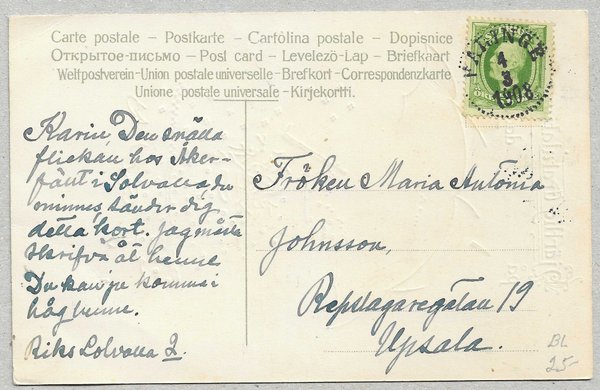 Carte postale – Postkarte – Cartolina postale – Dopisnice
Открытое-письмо – Post card – Levelező-Lap – Briefkaart
Weltpostverein-Union postale universelle-Brefkort-Correspondenzkarte
Unione postale universale-Kirjekortti.
VÄRINGE
4
3
1908
Karin, Den snälla
flickan hos Åker-
fält i Solvalla, du
minnes, sänder dig
detta kort. Jag måste
skrifva åt henne
Du kan ju komma i
håg henne.
Riks Solvalla 2.
Fröken Maria Antonia
Johnsson,
Repslagaregatan 19
Upsala.
BL
25-